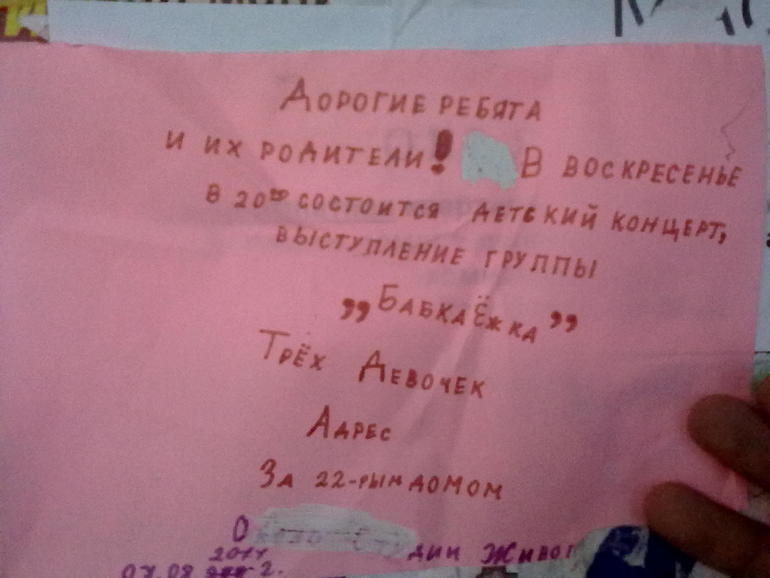 Дорогие ребята
и их родители! В воскресенье
в 20⁰⁰ состоится детский концерт,
выступление группы
„Бабка Ёжка”
Трёх девочек
Адрес
За 22-рым домом
дии живоп
2011
07.08 г.